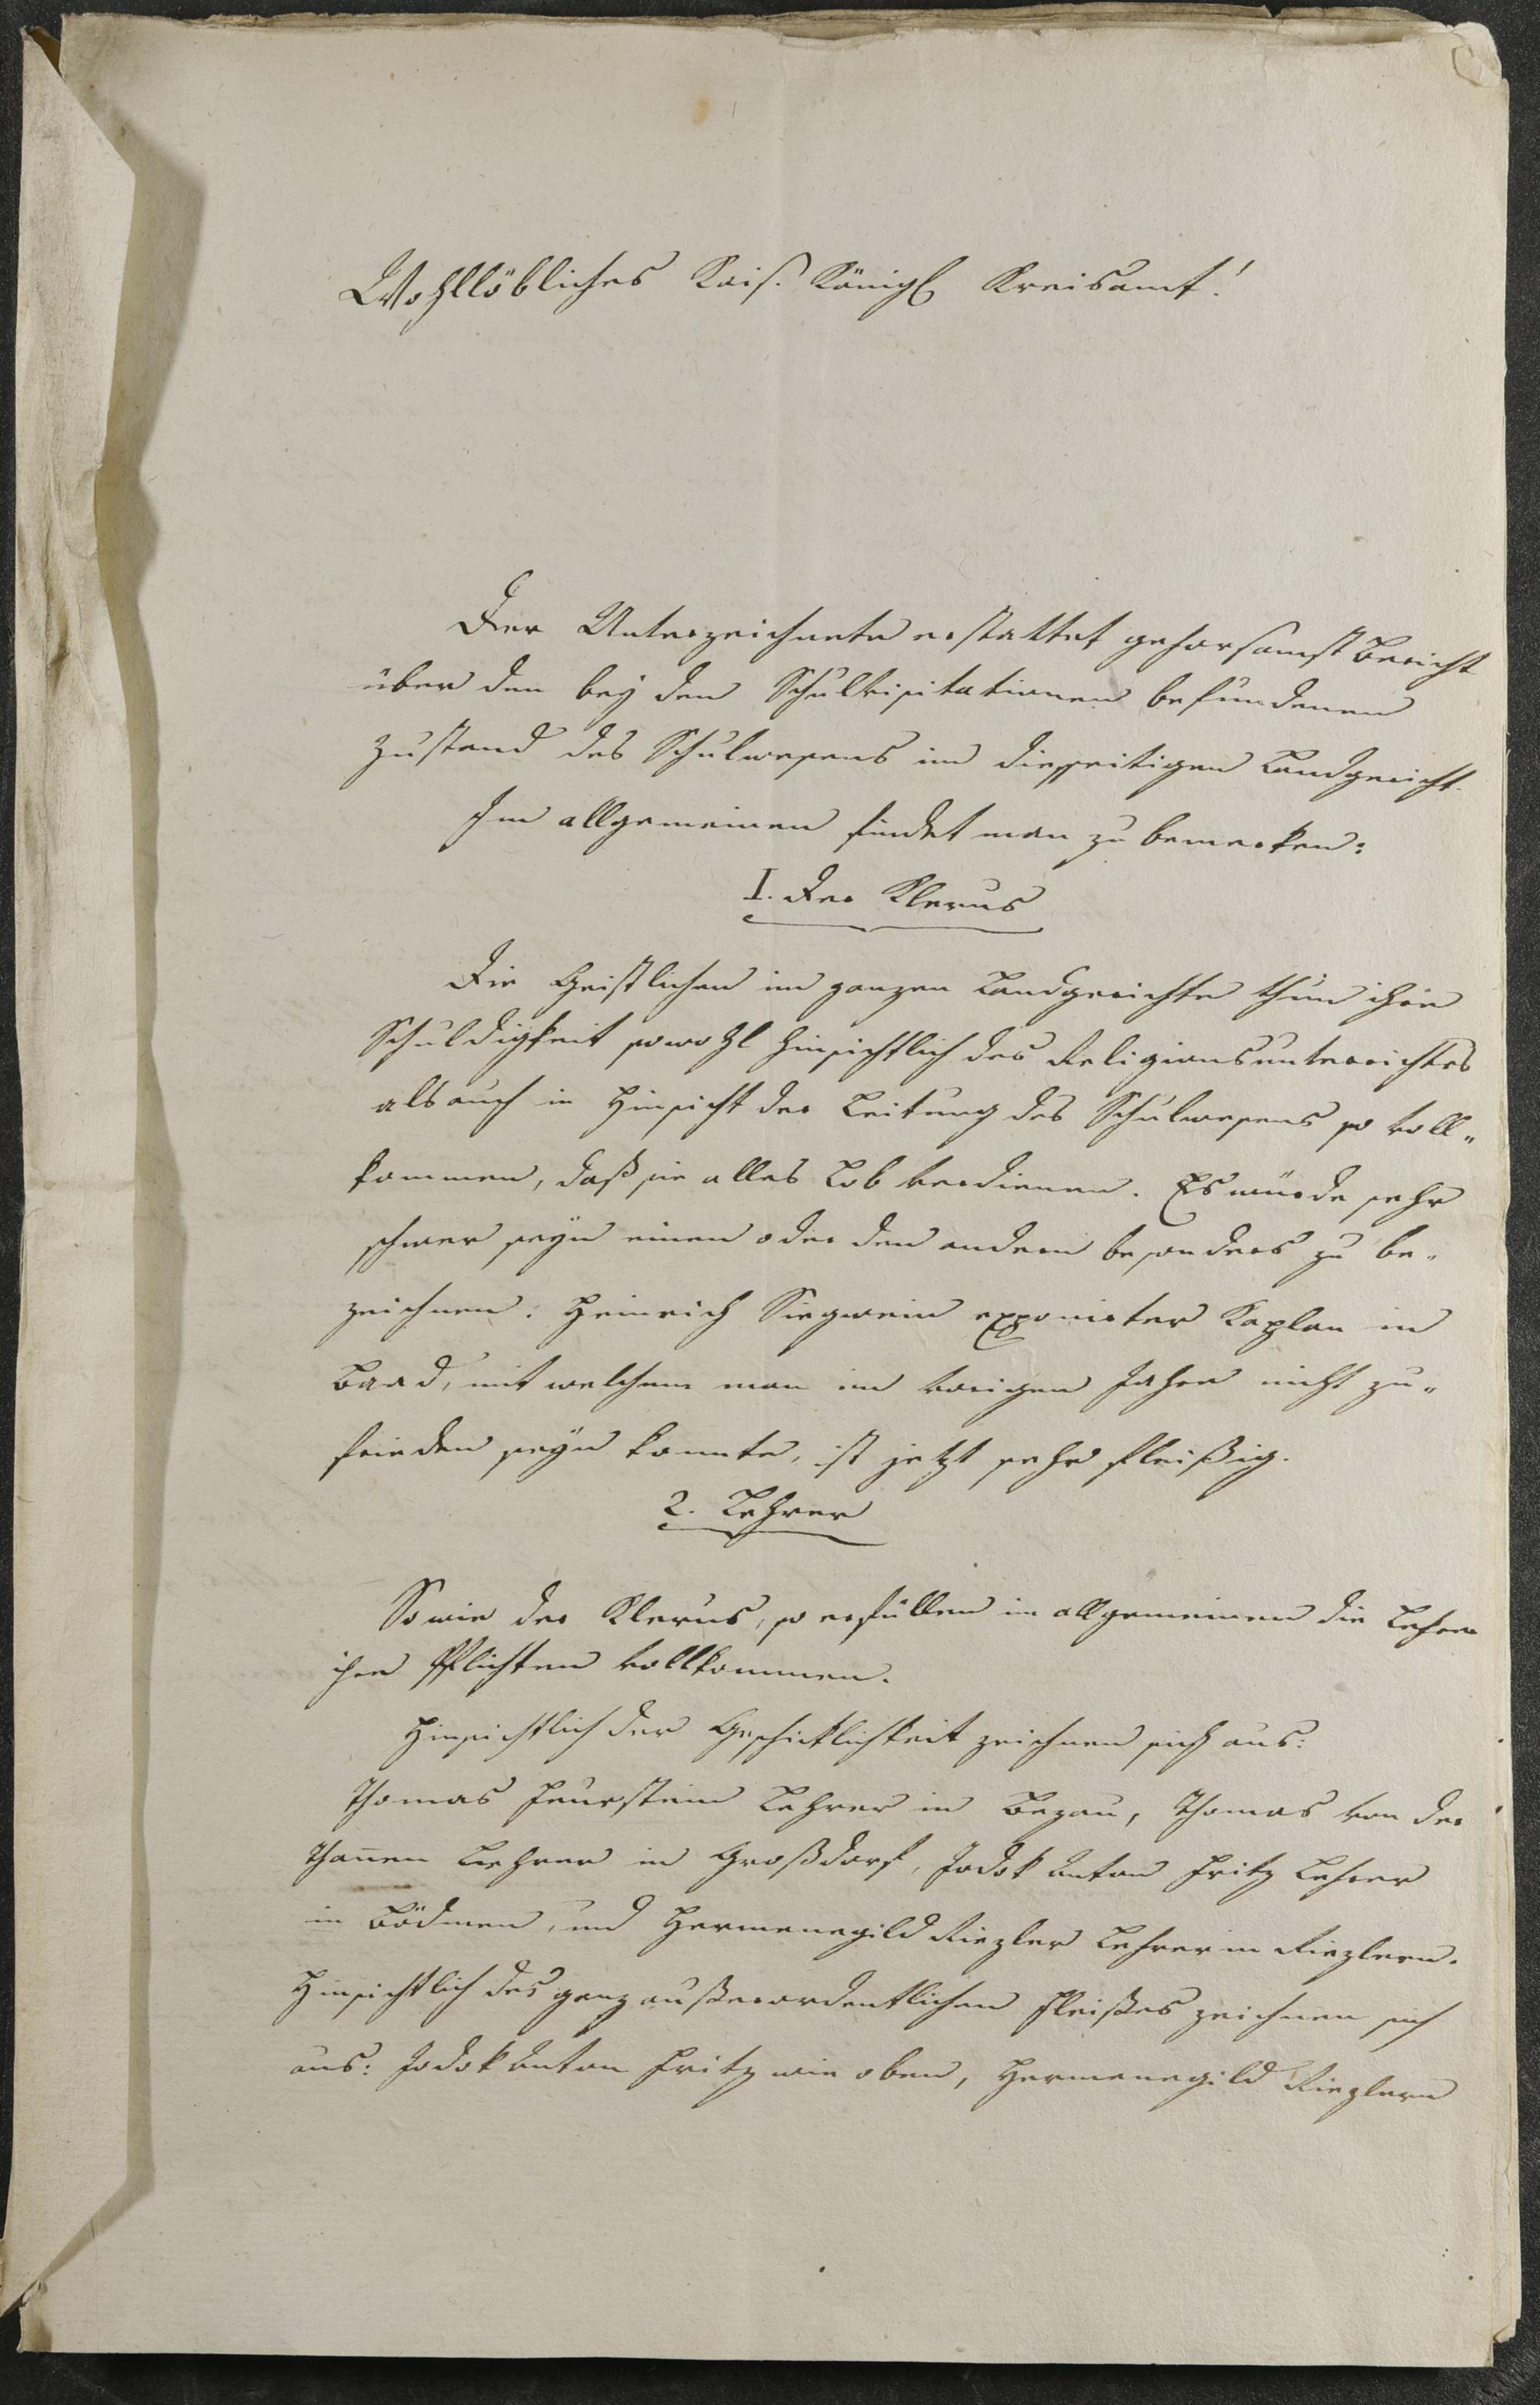 Wohllöbliches Kais. Königl Kreisamt!
Der Unterzeichnete erstattet gehorsamst Bericht
über den bey den Schulvisitationen befundenen
Zustand des Schulwesens im diesseitigen Landgericht.
Im allgemeinen findet man zu bemerken:
I. Der Klerus
Die Geistlichen im ganzen Landgerichte thun ihre
Schuldigkeit sowohl hinsichtlich des Religionsunterrichtes
als auch in Hinsicht der Leitung des Schulwesens so voll„
kommen, daß sie alles Lob verdienen. Es würde sehr
schwer seyn einen oder den andern besonders zu be„
zeichnen. Heinrich Siegwein exponirter Kaplan in
Baad, mit welchem man im vorigen Jahre nicht zu„
frieden seyn konnte, ist jetzt sehr fleißig.
2. Lehrer
So wie der Klerus, so erfüllen im allgemeinen die Lehrer
ihre Pflichten vollkommen.
Hinsichtlich der Geschicklichkeit zeichnen sich aus:
Thomas Feuerstein Lehrer in Bezau, Thomas von der
Thannen Lehrer in Großdorf, Jodok Anton Fritz Lehrer
in Bödmen, und Hermenegild Riezler Lehrer in Riezlern.
Hinsichtlich des ganz außerordentlichen Fleißes zeichnen sich
aus: Jodok Anton Fritz wie oben, Hermenegild Riezlern